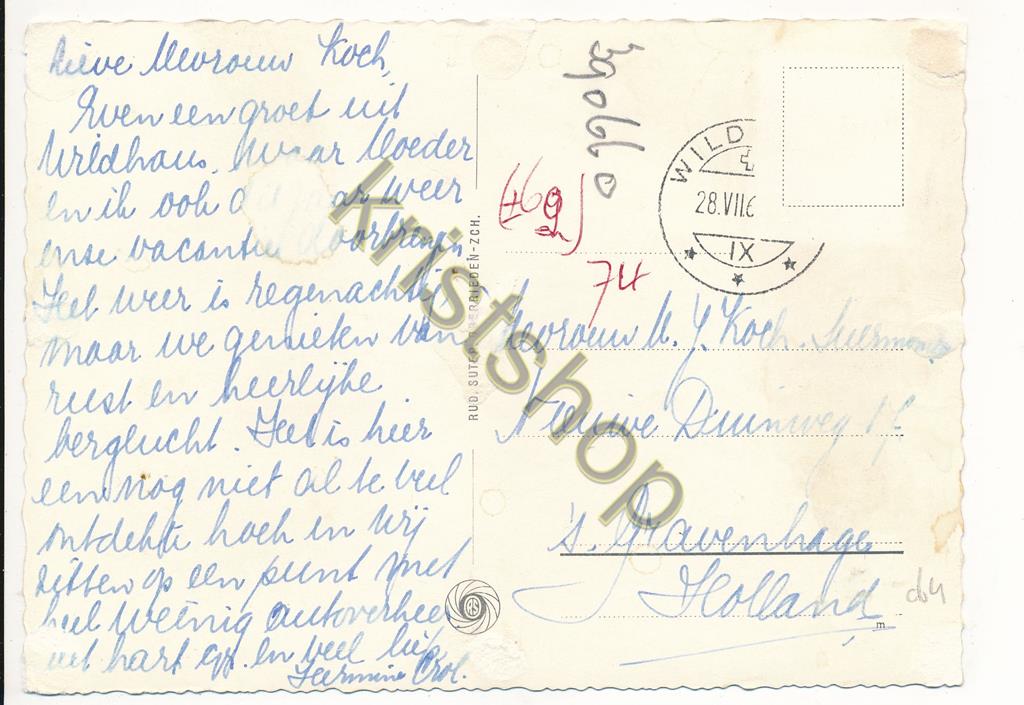 Lieve Mevrouw Koch,
Even een groet uit
Wildhaus, waar Moeder
en ik ook dit jaar weer
onze vacantie doorbrengen
Het weer is regenachtig,
maar we genieten van
rust en heerlijke
berglucht. Het is hier
een nog niet al te veel
ontdekte hoek en wij
zitten op een punt met
heel weinig autoverkeer
met hart op en veel
Hermine Crol.
RUD. SUTER OBERRIEDEN-ZCH.
39066 0
(±69
en)
74
WILD
28.VII.6
IX
Mevrouw M. J. Koch.
Nieuwe Duinweg
's Gravenhage
Holland
m
kristshop